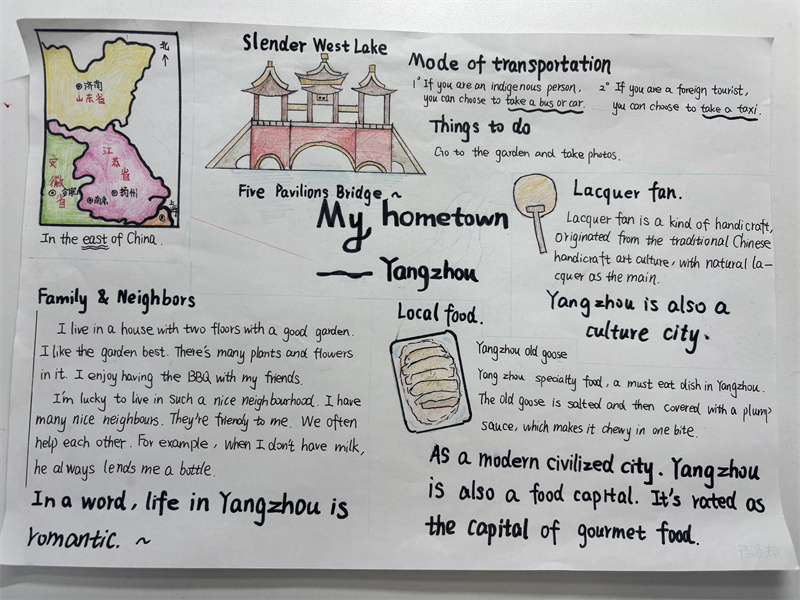 北
济南
山东省
安徽省
合肥
江苏省
南京
扬州
上海
In the east of China.
Slender West Lake
Five Pavilions Bridge ~
Mode of transportation
1° If you are an indigenous person,
you can choose to take a bus or car.
2° If you are a foreign tourist,
you can choose to take a taxi.
Things to do
Go to the garden and take photos.
My hometown
— Yangzhou
Lacquer fan.
Lacquer fan is a kind of handicraft,
originated from the traditional Chinese
handicraft art culture, with natural la-
cquer as the main.
Yangzhou is also a
culture city.
Family & Neighbors
I live in a house with two floors with a good garden.
I like the garden best. There's many plants and flowers
in it. I enjoy having the BBQ with my friends.
I'm lucky to live in such a nice neighbourhood. I have
many nice neighbours. They're friendly to me. We often
help each other. For example, when I don't have milk,
he always lends me a bottle.
In a word, life in Yangzhou is
romantic. ~
Local food.
Yangzhou old goose
Yang zhou specialty food, a must eat dish in Yangzhou.
The old goose is salted and then covered with a plump
sauce, which makes it chewy in one bite.
As a modern civilized city. Yangzhou
is also a food capital. It's rated as
the capital of gourmet food.